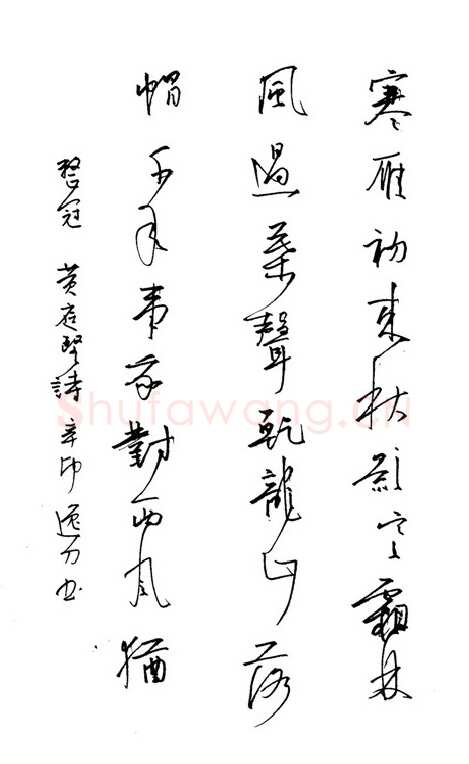 寒雁初來秋影寒霜林
風過葉聲乾龍山落
帽千年事我對西風猶
整冠 黄庭堅詩 辛卯 逸刀书
Shufawang.cn